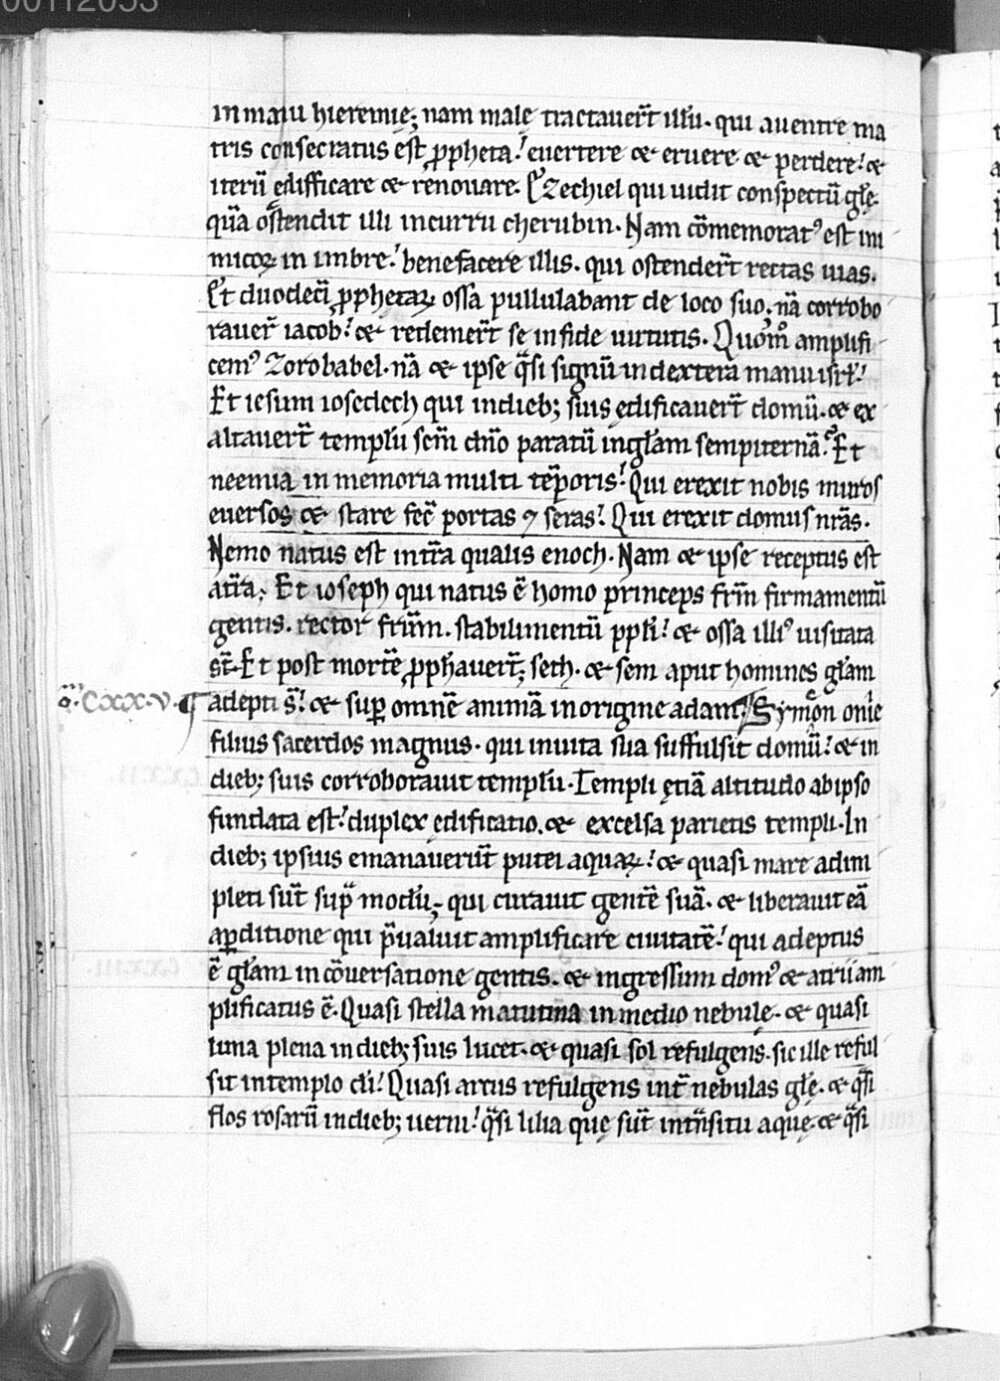 00112053
in manu hieremię; nam malę tractauer̄t illū. qui auentre ma
tris consecratus est ꝓpheta.' euertere & eruere & perdere.' &
iterū ędifficare & renouare. Ezechiel qui uidit conspectū głę.
quā ostendit illi incurru cherubin. Nam cōmemorat⁹ est ini
micoꝝ in imbre.' benefacere illis. qui ostender̄t rectas uias.
Et duodecī ꝓphetaꝝ ossa pullulabant de loco suo. nā corrobo
rauer̄ iacob.' & redemer̄t se in fide uirtutis. Quom̊ amplifi
cem⁹ Zorobabel. nā & ipse q̃si signū in dextera manu isrł.'
Et iesum iosedech qui in dieb; suis ędificauer̄t domū. & ex
altauer̄t templū scm̄ dn̄o paratū in głam sempiternā. Et
neemia in memoria multi tēporis.' Qui erexit nobis muros
euersos & stare fec̄ portas ⁊ seras.' Qui erexit domus nr̄as.
Nemo natus est in tr̄a qualis enoch. Nam & ipse receptus est
a tr̄a. Et ioseph qui natus ē homo princeps fr̄m firmamentū
gentis. rector fr̄um. stabilimentū ppłi.' & ossa illi⁹ uisitata
st̄. Et post mortē ꝓphauer̄t; seth. & sem aput homines głam
q̄.CXX.V. ¶ adepti s̄.' & suꝑ omnē animā in origine adam. Symon onię
filius sacerdos magnus. qui in uita sua suffulsit domū.' & in
dieb; suis corroborauit templū. Templi ętiā altitudo ab ipso
fundata est.' duplex edificatio. & excelsa parietis templi. In
dieb; ipsius emanauerūt putei aquaꝝ.' & quasi mare adim
pleti sūt sup̄ modū. qui curauit gentē suā. & liberauit eā
aꝑditione qui p̄ualuit amplificare ciuitatē.' qui adeptus
ē głam in cōuersatione gentis. & ingressum dom⁹ & atrii am
plificatus ē. Quasi stella matutina in medio nebulę. & quasi
luna plena in dieb; suis lucet. & quasi sol refulgens. sic ille reful
sit in templo di.' Quasi arcus refulgens int̄ nebulas głę. & q̃si
flos rosarū in dieb; uerni.' q̃si lilia quę sūt in trn̄situ aquę. & q̃si